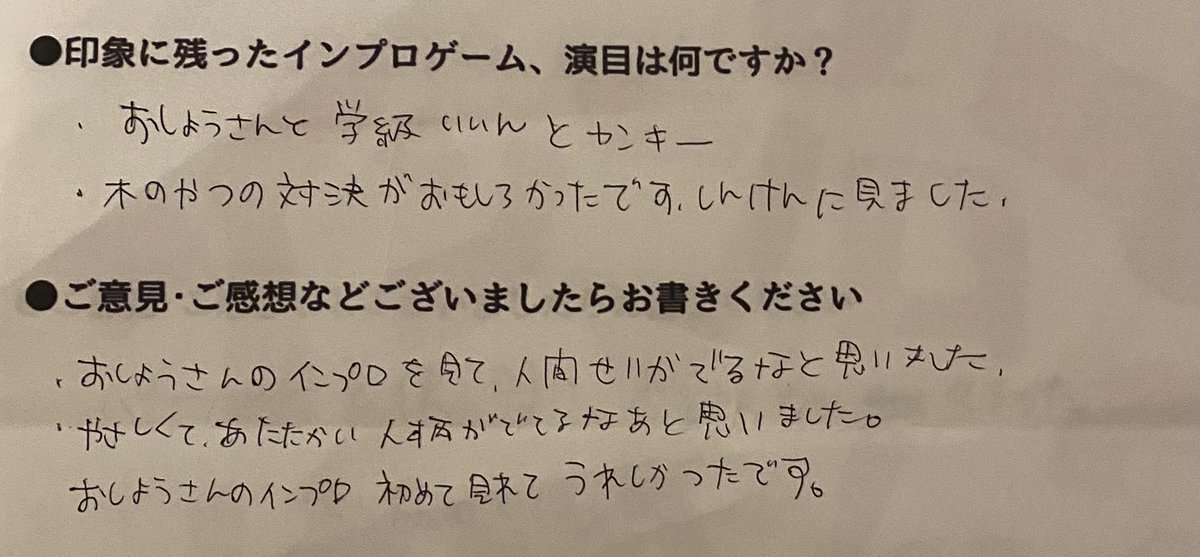 ●印象に残ったインプロゲーム、演目は何ですか？
・おしょうさんと 学級いいんとヤンキー
・木のやつの対決がおもしろかったです、しんけんに見ました、
●ご意見・ご感想などございましたらお書きください
・おしょうさんのインプロを見て、人間せいがでるなと思いました、
・やさしくて、あたたかい人柄がでてるなあと思いました。
おしょうさんのインプロ 初めて見れてうれしかったです。